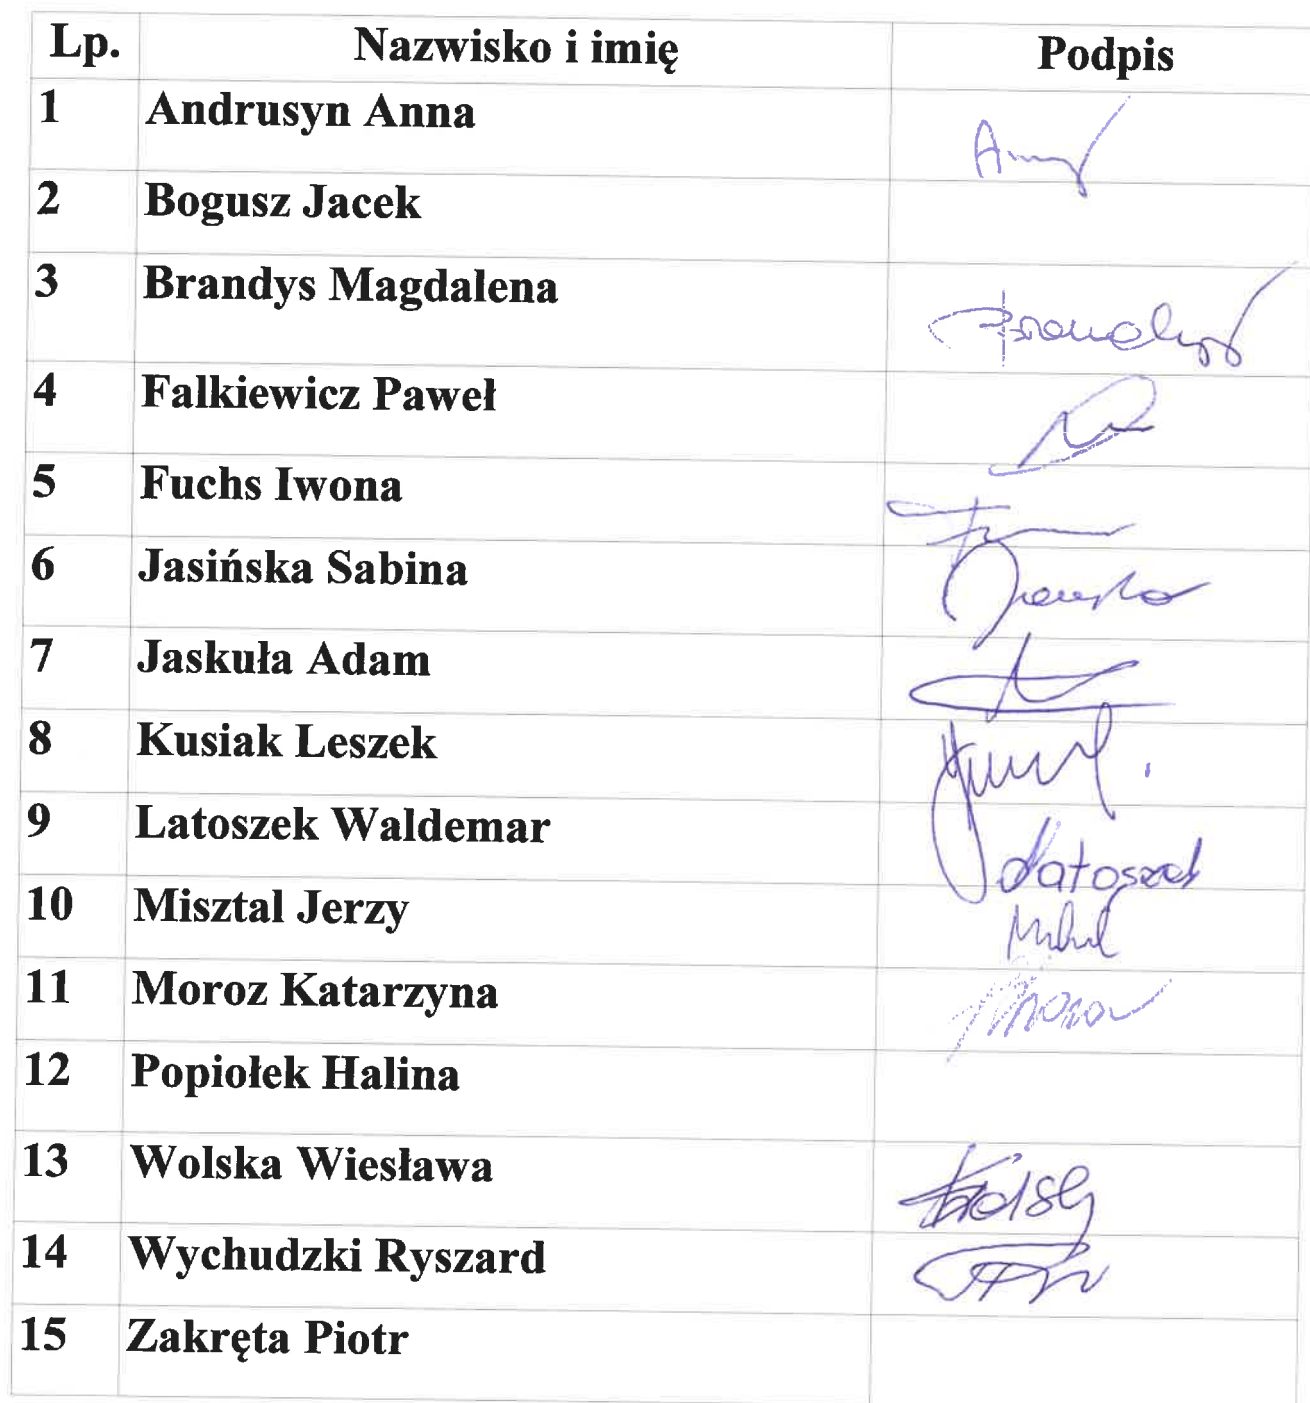 Lp. Nazwisko i imię Podpis
1 Andrusyn Anna
2 Bogusz Jacek
3 Brandys Magdalena Brandys
4 Falkiewicz Paweł
5 Fuchs Iwona
6 Jasińska Sabina
7 Jaskuła Adam
8 Kusiak Leszek
9 Latoszek Waldemar Latoszek
10 Misztal Jerzy
11 Moroz Katarzyna
12 Popiołek Halina
13 Wolska Wiesława
14 Wychudzki Ryszard
15 Zakręta Piotr